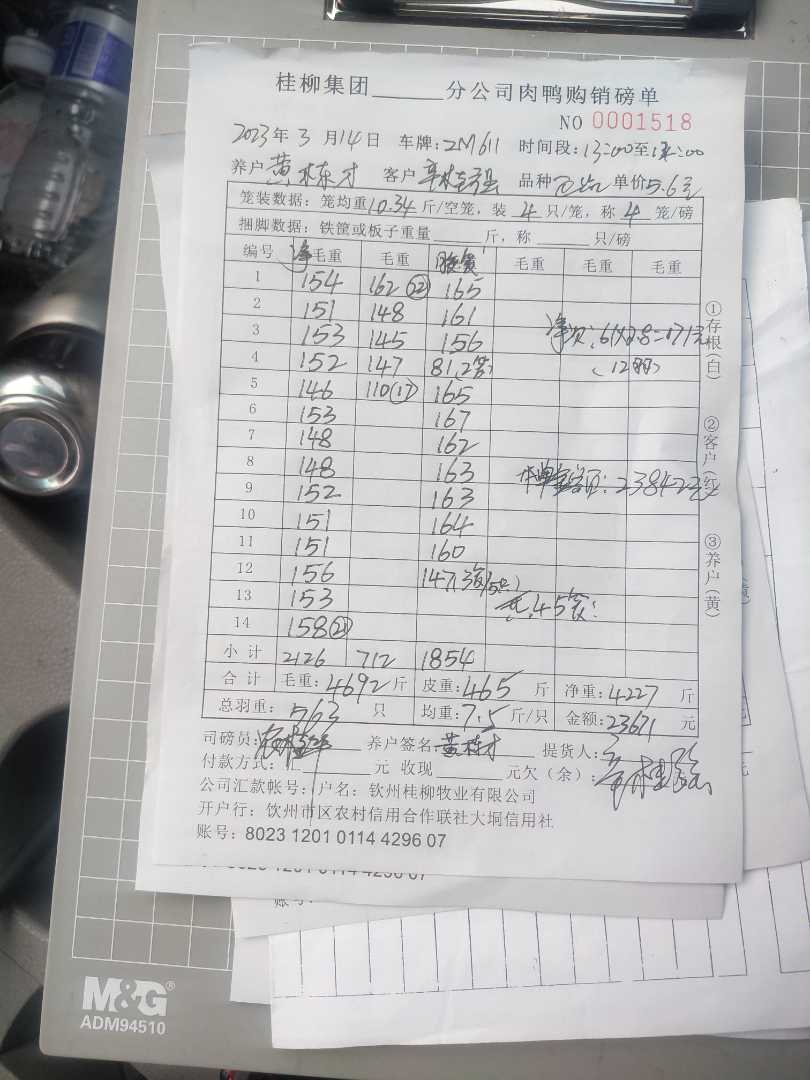 桂柳集团______分公司肉鸭购销磅单
NO 0001518
2023年3月14日 车牌:2M611 时间段:13:00至
养户黄栋才 客户 品种 单价5.6元
笼装数据:笼均重10.34斤/空笼,装4只/笼,称4笼/磅
捆脚数据:铁筐或板子重量______斤,称______只/磅
编号 净毛重 毛重 毛重 毛重 毛重
1 154 162 165
2 151 148 161
3 153 145 156
4 152 147 81.2笼
5 146 110 165
6 153 167
7 148 162
8 148 163
9 152 163
10 151 164
11 151 160
12 156 147
13 153
14 158
小计 2126 712 1854
合计 毛重:4692斤 皮重:465斤 净重:4227斤
总羽重:563只 均重:7.5斤/只 金额:23671元
司磅员: 养户签名:黄栋才 提货人:
付款方式:汇______元 收现______元欠(余):
公司汇款帐号:户名:钦州桂柳牧业有限公司
开户行:钦州市区农村信用合作联社大垌信用社
账号:8023 1201 0114 4296 07
①存根(白)
②客户(红)
③养户(黄)
61×2.8=171元
:23842元
M&G®
ADM94510